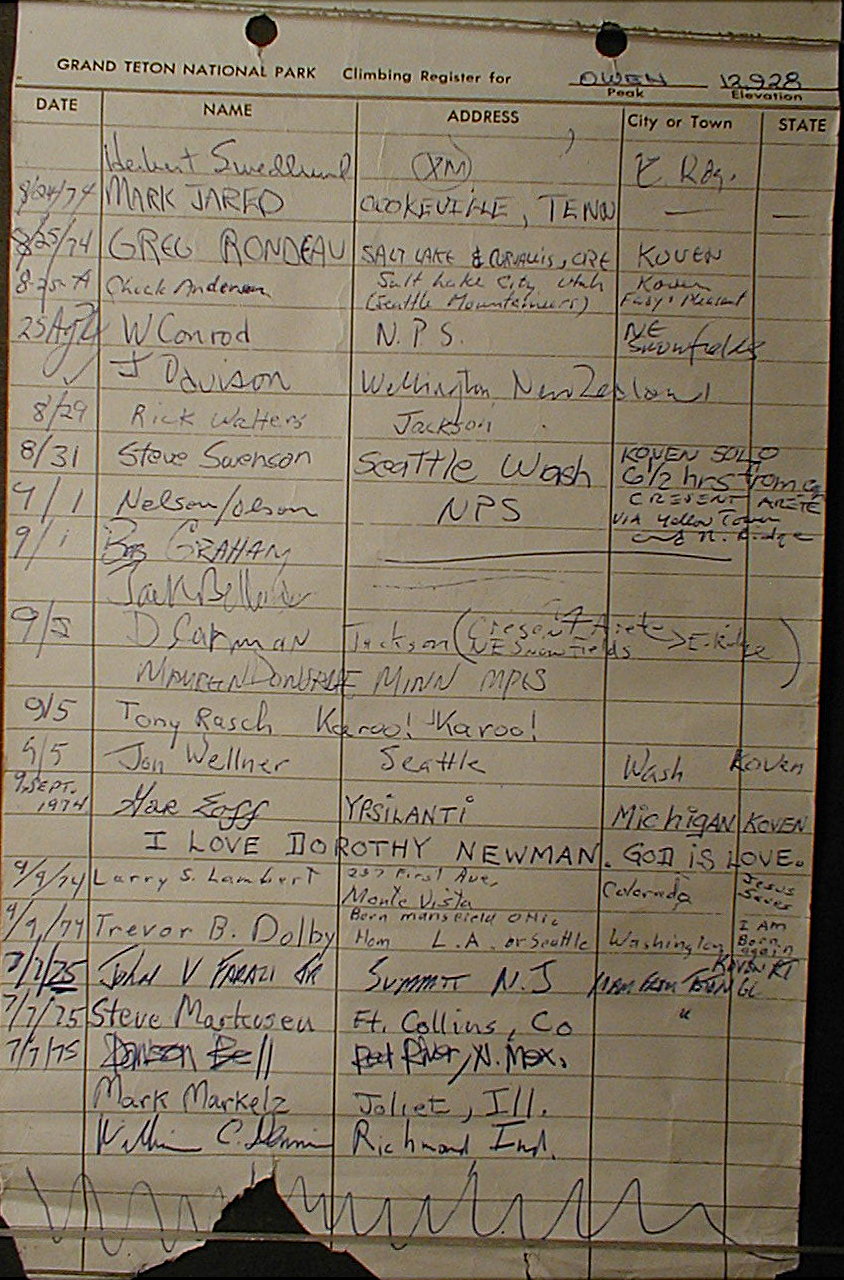 GRAND TETON NATIONAL PARK Climbing Register for OWEN 12,928
Peak Elevation
DATE NAME ADDRESS City or Town STATE
Herbert Swedlund (XM) E. Rdg.
8/24/74 MARK JARED COOKEVILLE, TENN — —
8/25/74 GREG RONDEAU SALT LAKE & CORVALLIS, ORE KOVEN
8-25-74 Chuck Anderson Salt Lake City, Utah Koven
(Seattle Mountaineers) Easy & Pleasant
25 Ag 74 W Conrod N.P.S. NE
Snowfields
✓ J Davison Wellington New Zealand
8/29 Rick Walters Jackson
8/31 Steve Swenson Seattle Wash KOVEN SOLO
6 1/2 hrs from
9/1 Nelson/Olson NPS CRESENT ARETE
VIA Yellow Tower
and N. Ridge
9/1 Bob GRAHAM
Jack
9/2 D Carman Jackson (Cresent Arete
NE Snowfields → E. Ridge)
MAUREEN DONSAHE MINN MPLS
9/5 Tony Rasch Karoo! Karoo!
9/5 Jon Wellner Seattle Wash Koven
9 SEPT.
1974 Eoff YPSILANTI MichiGAN KOVEN
I LOVE DOROTHY NEWMAN. GOD iS LOVE.
9/9/74 Larry S. Lambert 237 First Ave, Colorado Jesus
Monte Vista Saves
9/9/74 Trevor B. Dolby Born mansfield OHIO I AM
Hom L.A. or Seattle Washington Born again
7/7/75 JOHN V FARAZI JR SUMMIT N.J KOVEN RT
11 AM FROM TETON GL
7/7/75 Steve Markusen Ft. Collins, Co "
7/7/75 Dawson Bell Red River, N. Mex.
Mark Markelz Joliet, Ill.
William C. Dennis Richmond Ind.